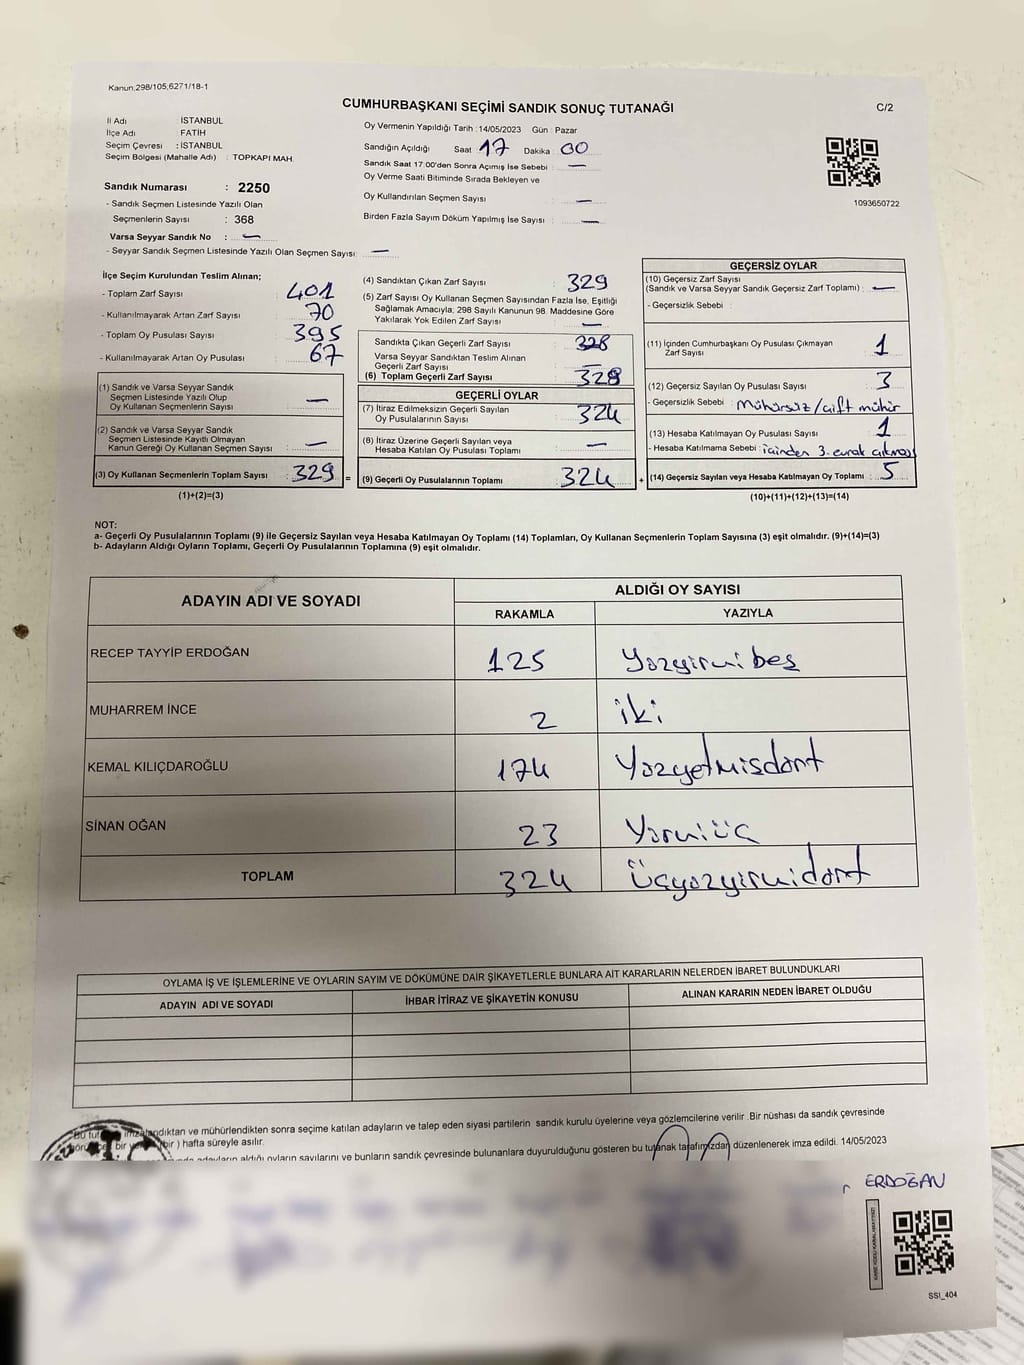 Kanun,298/105,6271/18-1
CUMHURBAŞKANI SEÇİMİ SANDIK SONUÇ TUTANAĞI
C/2
İl Adı : İSTANBUL
İlçe Adı : FATİH
Seçim Çevresi : İSTANBUL
Seçim Bölgesi (Mahalle Adı) : TOPKAPI MAH.
Sandık Numarası : 2250
- Sandık Seçmen Listesinde Yazılı Olan
Seçmenlerin Sayısı : 368
Varsa Seyyar Sandık No : —
- Seyyar Sandık Seçmen Listesinde Yazılı Olan Seçmen Sayısı: —
Oy Vermenin Yapıldığı Tarih :14/05/2023 Gün : Pazar
Sandığın Açıldığı Saat 17 Dakika 00
Sandık Saat 17:00'den Sonra Açımış İse Sebebi : —
Oy Verme Saati Bitiminde Sırada Bekleyen ve
Oy Kullandırılan Seçmen Sayısı : —
Birden Fazla Sayım Döküm Yapılmış İse Sayısı : —
1093650722
İlçe Seçim Kurulundan Teslim Alınan;
- Toplam Zarf Sayısı : 401
- Kullanılmayarak Artan Zarf Sayısı : 70
- Toplam Oy Pusulası Sayısı : 395
- Kullanılmayarak Artan Oy Pusulası : 67
(1) Sandık ve Varsa Seyyar Sandık
Seçmen Listesinde Yazılı Olup
Oy Kullanan Seçmenlerin Sayısı : —
(2) Sandık ve Varsa Seyyar Sandık
Seçmen Listesinde Kayıtlı Olmayan
Kanun Gereği Oy Kullanan Seçmen Sayısı : —
(3) Oy Kullanan Seçmenlerin Toplam Sayısı : 329 =
(1)+(2)=(3)
(4) Sandıktan Çıkan Zarf Sayısı : 329
(5) Zarf Sayısı Oy Kullanan Seçmen Sayısından Fazla İse, Eşitliği
Sağlamak Amacıyla; 298 Sayılı Kanunun 98. Maddesine Göre
Yakılarak Yok Edilen Zarf Sayısı : —
Sandıkta Çıkan Geçerli Zarf Sayısı : 328
Varsa Seyyar Sandıktan Teslim Alınan
Geçerli Zarf Sayısı : —
(6) Toplam Geçerli Zarf Sayısı : 328
GEÇERLİ OYLAR
(7) İtiraz Edilmeksizin Geçerli Sayılan
Oy Pusulalarının Sayısı : 324
(8) İtiraz Üzerine Geçerli Sayılan veya
Hesaba Katılan Oy Pusulası Toplamı : —
(9) Geçerli Oy Pusulalarının Toplamı : 324 +
GEÇERSİZ OYLAR
(10) Geçersiz Zarf Sayısı
(Sandık ve Varsa Seyyar Sandık Geçersiz Zarf Toplamı) : —
- Geçersizlik Sebebi :
(11) İçinden Cumhurbaşkanı Oy Pusulası Çıkmayan
Zarf Sayısı : 1
(12) Geçersiz Sayılan Oy Pusulası Sayısı : 3
- Geçersizlik Sebebi : Mühürsüz/çift mühür
(13) Hesaba Katılmayan Oy Pusulası Sayısı : 1
- Hesaba Katılmama Sebebi : içinden 3. evrak çıkması
(14) Geçersiz Sayılan veya Hesaba Katılmayan Oy Toplamı : 5
(10)+(11)+(12)+(13)=(14)
NOT:
a- Geçerli Oy Pusulalarının Toplamı (9) ile Geçersiz Sayılan veya Hesaba Katılmayan Oy Toplamı (14) Toplamları, Oy Kullanan Seçmenlerin Toplam Sayısına (3) eşit olmalıdır. (9)+(14)=(3)
b- Adayların Aldığı Oyların Toplamı, Geçerli Oy Pusulalarının Toplamına (9) eşit olmalıdır.
ADAYIN ADI VE SOYADI
ALDIĞI OY SAYISI
RAKAMLA YAZIYLA
RECEP TAYYİP ERDOĞAN 125 Yüzyirmibeş
MUHARREM İNCE 2 iki
KEMAL KILIÇDAROĞLU 174 Yüzyetmisdört
SİNAN OĞAN 23 Yirmiüç
TOPLAM 324 Üçyüzyirmidört
OYLAMA İŞ VE İŞLEMLERİNE VE OYLARIN SAYIM VE DÖKÜMÜNE DAİR ŞİKAYETLERLE BUNLARA AİT KARARLARIN NELERDEN İBARET BULUNDUKLARI
ADAYIN ADI VE SOYADI İHBAR İTİRAZ VE ŞİKAYETİN KONUSU ALINAN KARARIN NEDEN İBARET OLDUĞU
Bu imzalandıktan ve mühürlendikten sonra seçime katılan adayların ve talep eden siyasi partilerin sandık kurulu üyelerine veya gözlemcilerine verilir .Bir nüshası da sandık çevresinde
bir (bir ) hafta süreyle asılır.
adayların aldığı oyların sayılarını ve bunların sandık çevresinde bulunanlara duyurulduğunu gösteren bu tutanak tarafımızdan düzenlenerek imza edildi. 14/05/2023
ERDOĞAN
SSİ_404